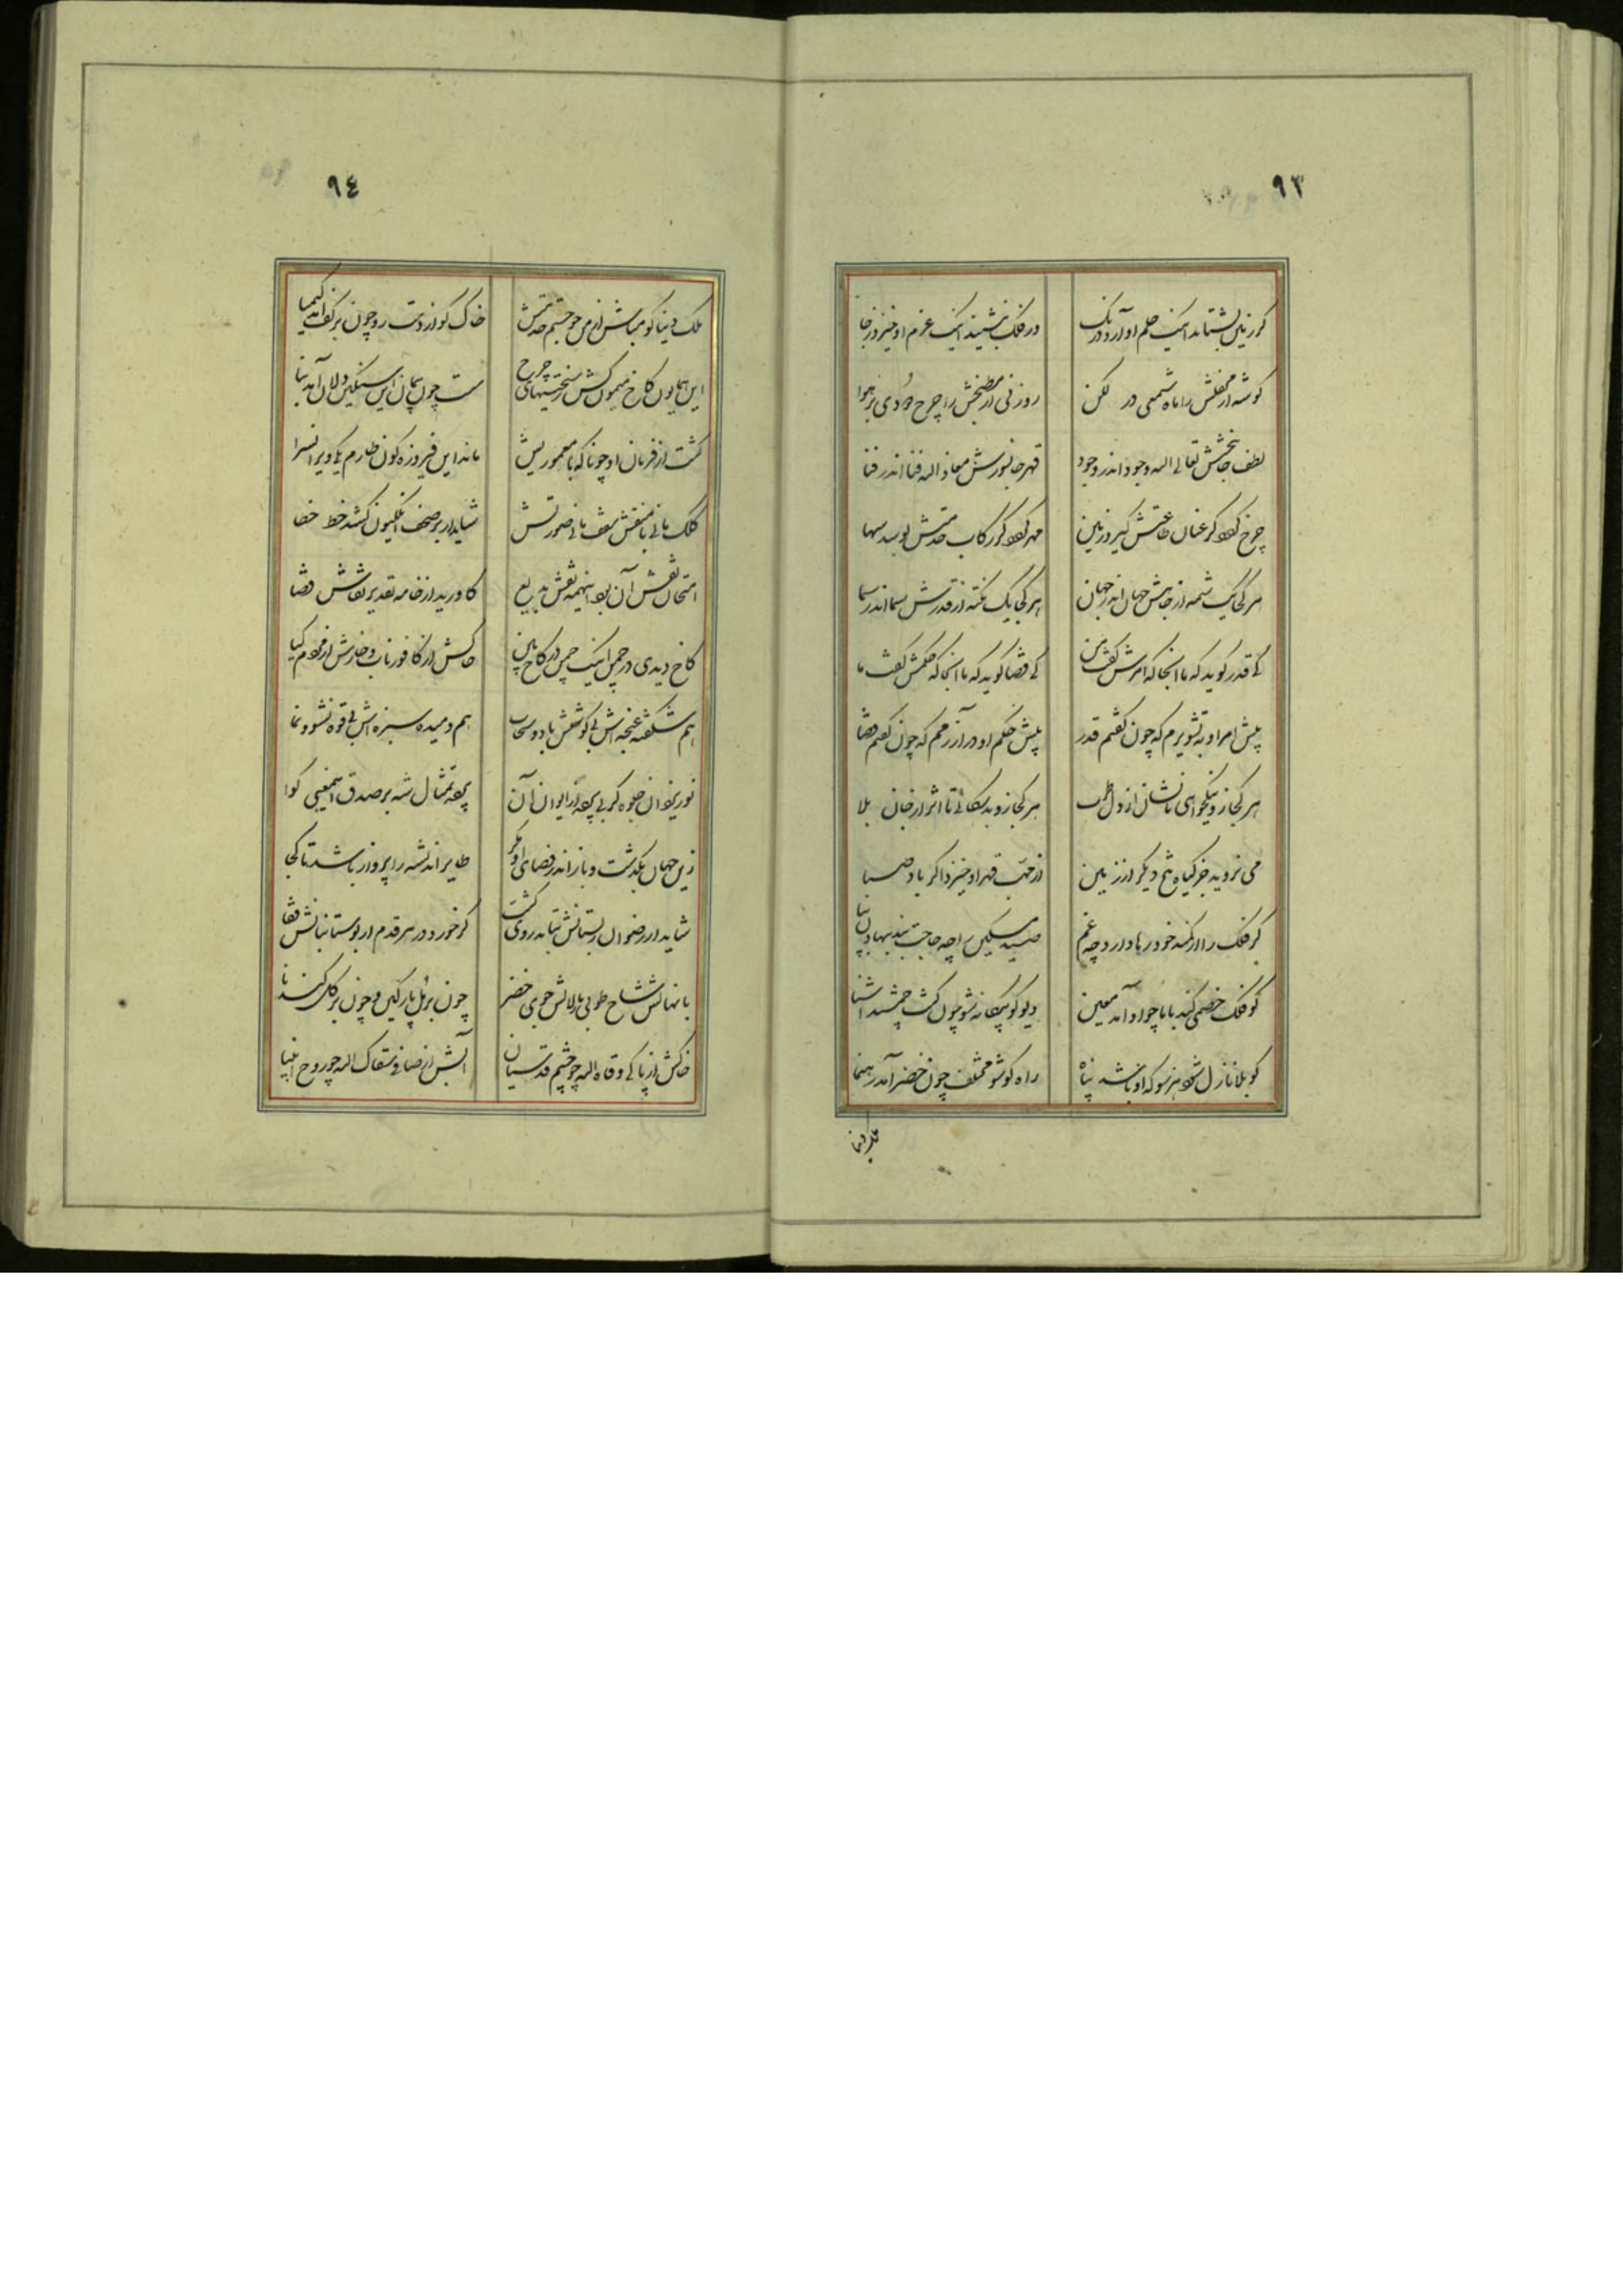 ۹۳
گر زمین بشتابد اینک حلم او آرد درنگ
ور فلک بنشیند اینک عزم او خیز از جا
گوشه از محفلش را ماه شمعی در لگن
روزنی از مطبخش را چرخ دودی بر هوا
لطف جان بخشش تعالی الله وجود اندر وجود
قهر جانسوزش معاذ الله فنا اندر فنا
چرخ کو گر عنان طاعتش گیرد زمین
مهر کو گر رکاب خدمتش بوسد سها
هر کجا یک شمه از جاهش جهان اندر جهان
هر کجا یک نکته از قدرش سما اندر سما
کی قدر گوید که ما آنجا که امرش گفت من
کی قضا گوید که ما آنجا که حکمش گفت ما
پیش امر او به تشویرم که چون گفتم قدر
پیش حکم او در آزرمم که چون گفتم قضا
هر کجا زو نیکخواهی تا نشان از دل طرب
هر کجا زو بدسگالی تا اثر از جان بلا
می نروید جز گیاه تلخ دیگر از زمین
از مهب قهر او خیزد اگر باد صبا
گر فلک را از کمند خود رها دارد چه غم
صید مسکین را چه حاجت بند بنهادن بپا
گو فلک خصمی کند با ما چو او آمد معین
دیو گو بیگانه شو چون گشت جمشید آشنا
گو بلا نازل شو هر سو که او باشد پناه
راه گو شو مختلف چون خضر آمد رهنما
ملک دنیا
۹٤
ملک دنیا گو مباش از من چو جستم خدمتش
خاک گو از دست رو چون بر کف آمد کیمیا
این همایون کاخ میمون کش ز سختیهای چرخ
سست چون پیمان این سنگین دلان آمد بنا
گشت از فرمان او چونانکه با معموریش
ماند این فیروزه گون طارم یکی ویرانسرا
کلک مانی با منقش سقف مانی صورتش
شاید ار بر صحف انگلیون کشد خط خطا
امتحان نقش آن بود اینهمه نقش بدیع
کاورید از خامه تقدیر نقاش قضا
کاخ دیدی در چمن اینک چمن در کاخ بین
خاکش از کافور ناب و خارش از مردم گیا
هم شکفته غنچه اش بی کوشش باد و سحاب
هم دمیده سبزه اش بی قوه نشو و نما
نور یزدان جلوه گر بی پرده از ایوان آن
پرده تمثال شه بر صدق این معنی گوا
زین جهان بگذشت و باز اندر فضای او مگر
طایر اندیشه را پرواز باشد تا کجا
شاید ار رضوان ز بستانش نتابد روی گشت
گر خورد در هر قدم از بوستانبانش قفا
با نهالش شاخ طوبی با زلالش جوی خضر
چون بر مل پارگین و چون بر گل گندنا
خاکش از پاکی وقاه الله چو جسم قدسیان
آبش از صافی سقاک الله چو روح انبیا